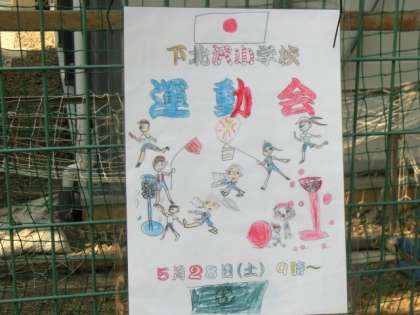 下北沢小学校
運動会
5月28日(土) 9時～